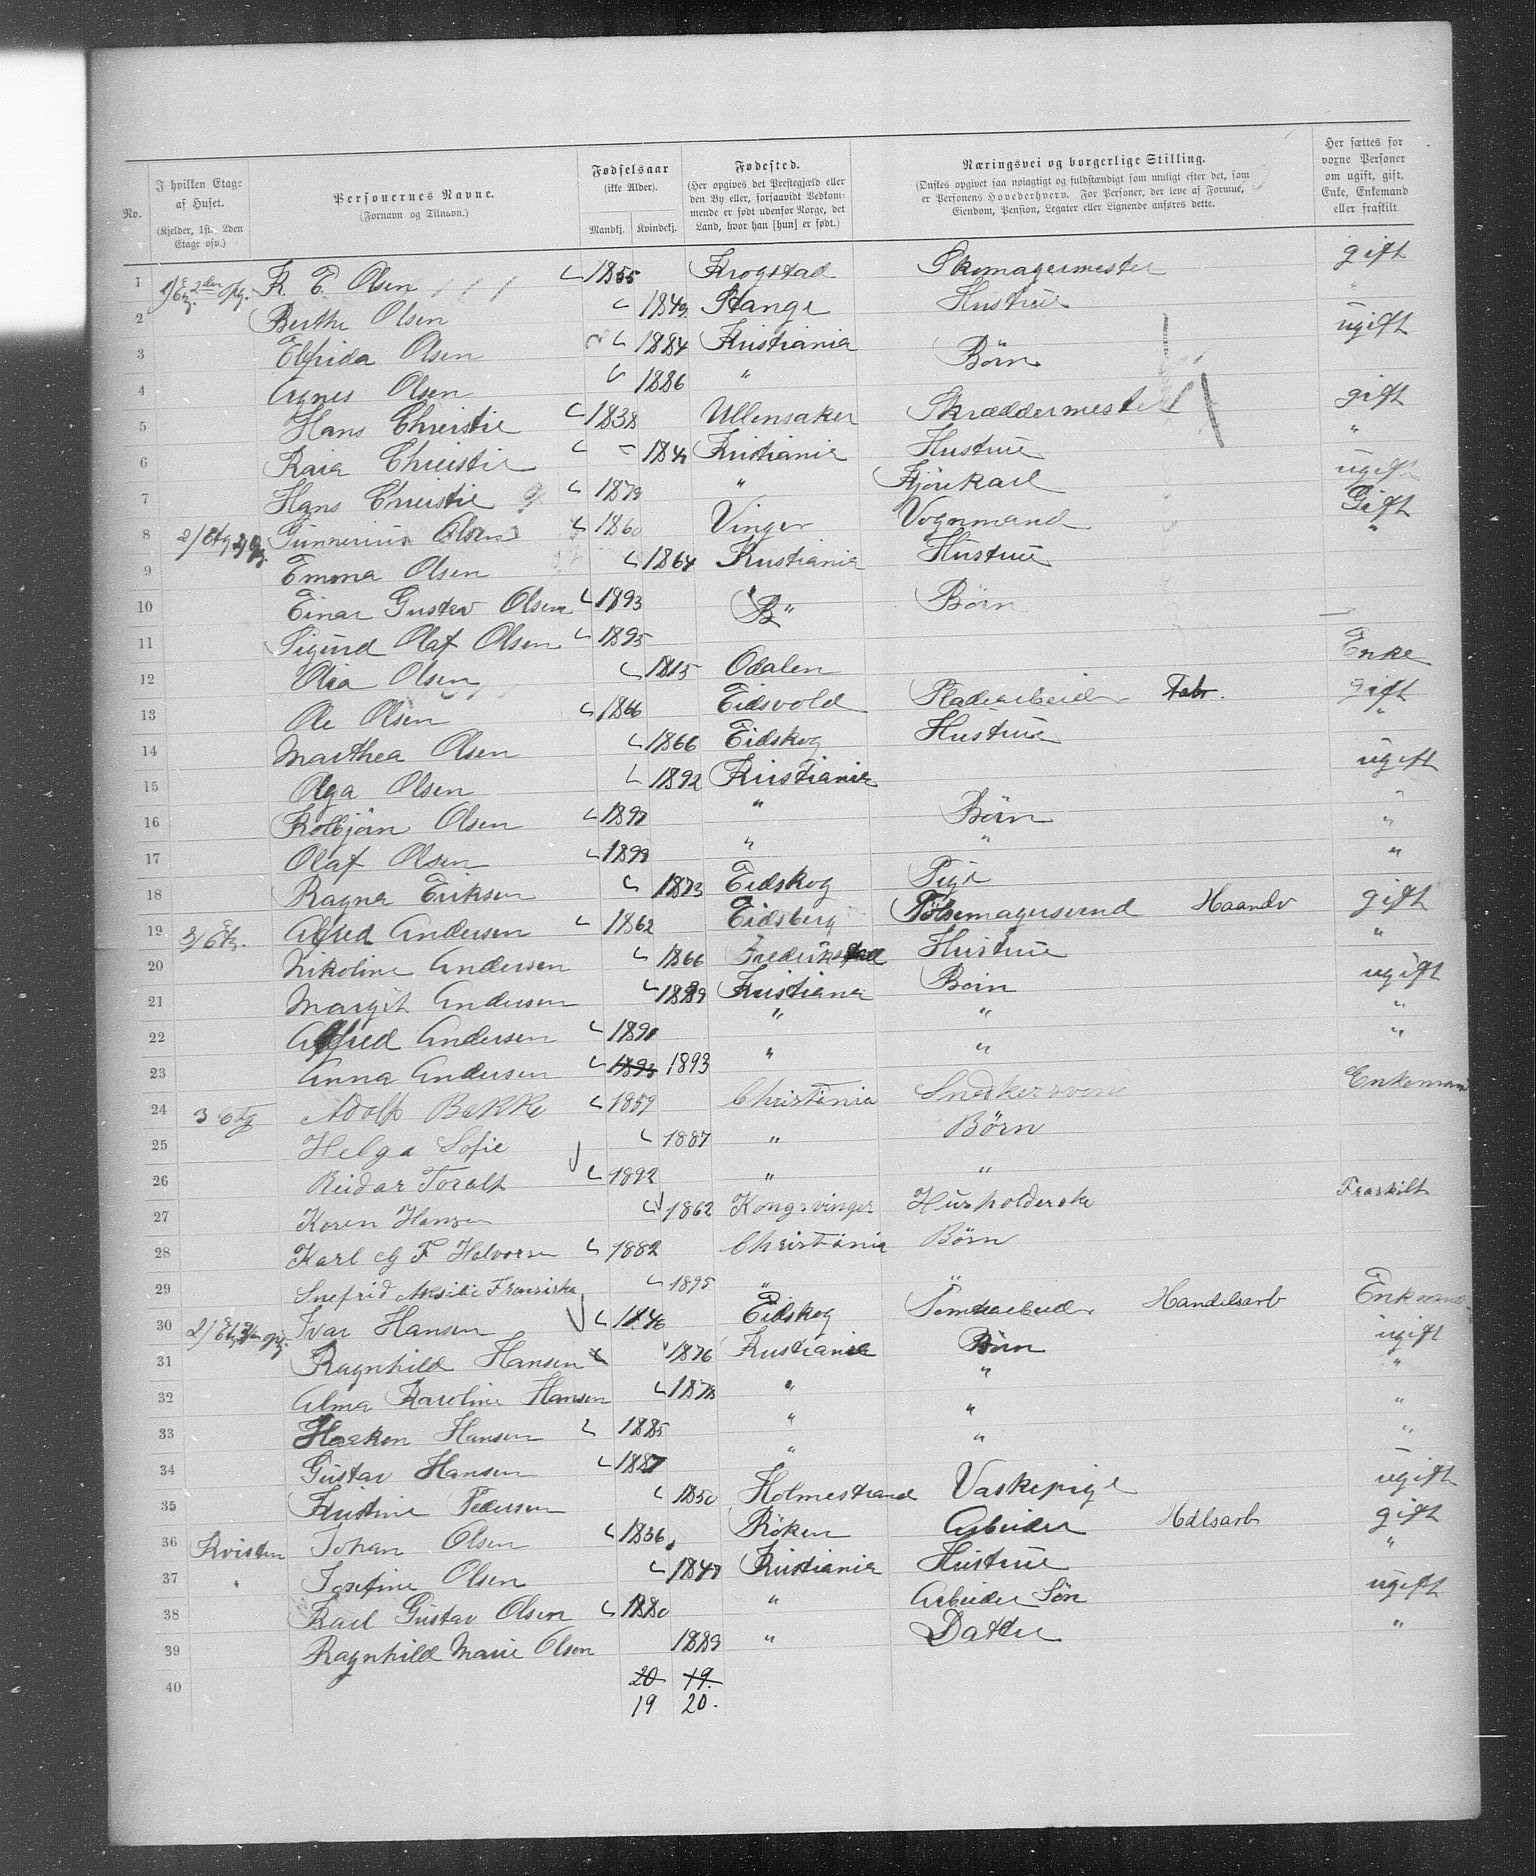 No.
I hvilken Etage af Huset. (Kjelder, 1ste, 2den Etage osv.)
Personernes Navne. (Fornavn og Tilnavn.)
Fødselsaar (ikke Alder). Mandkj. Kvindekj.
Fødested. (Her opgives det Prestegjæld eller den By eller, forsaavidt Vedkommende er født udenfor Norge, det Land, hvor han [hun] er født.)
Næringsvei og borgerlige Stilling. (Ønskes opgivet saa nøiagtigt og fuldstændigt som muligt efter det, som er Personens Hovederhverv. For Personer, der leve af Formue, Eiendom, Pension, Legater eller Lignende anføres dette.
Her sættes for voxne Personer om ugift, gift, Enke, Enkemand eller fraskilt
1 K. E. Olsen 1855 Krogstad Skomagermester gift
2 Berthe Olsen 1843 Stange Hustrue "
3 Elfrida Olsen 1884 Kristiania Börn ugift
4 Agnes Olsen 1886 "
5 Hans Christie 1838 Ullensaker Skræddermester gift
6 Christie Kristiania Hustrue "
7 Hans Christie 1879 " Kjörekarl ugift
8 2/Etg Gunnerius Olsen 1860 Vinger Vognmand Gift
9 Emma Olsen 1864 Kristiania Hustrue "
10 Einar Gustav Olsen 1893 " Börn
11 Sigurd Olaf Olsen 1895
12 Olia Olsen 1815 Odalen Enke
13 Ole Olsen 1866 Eidsvold Pladearbeider Fabr. gift
14 Marthea Olsen 1866 Eidskog Hustrue "
15 Olga Olsen 1892 Kristiania ugift
16 Kolbjørn Olsen 1897 " Börn "
17 Olaf Olsen 1899 " " "
18 Ragna Eriksen 1873 Eidskog Pige "
19 3/Etg. Alfred Andersen 1862 Eidsberg Pølsemagersvend Haandv gift
20 Nikoline Andersen 1866 Fredrikstad Hustrue "
21 Margit Andersen 1889 Kristiania Börn ugift
22 Alfred Andersen 1890 " " "
23 Anna Andersen 1893 1893 " " "
24 3 Etg Adolf Bakke 1859 Christiania Snedkersvend Enkemand
25 Helga Sofie 1887 " Börn
26 Reidar Toralf 1892 " "
27 Karen Hansen 1862 Kongsvinger Husholderske Fraskilt
28 Karl G F Halvorsen 1882 Christiania Börn
29 Snefrid Aksilie Fransiska 1895 "
30 Ivar Hansen 1846 Eidskog Tomtearbeider Handelsarb Enkemand
31 Ragnhild Hansen 1876 Kristiania Börn ugift
32 Alma Karoline Hansen 1878 " " "
33 Haakon Hansen 1885 " " "
34 Gustav Hansen 1887 " " "
35 Kristine Pedersen 1850 Holmestrand Vaskepige ugift
36 Kvisten Johan Olsen 1836 Röken Arbeider Hdlsarb gift
37 " Josefine Olsen 1847 Kristiania Hustrue "
38 Karl Gustav Olsen 1880 " Arbeider Sön ugift
39 Ragnhild Marie Olsen 1889 " Datter "
40 20 19.
19 20.